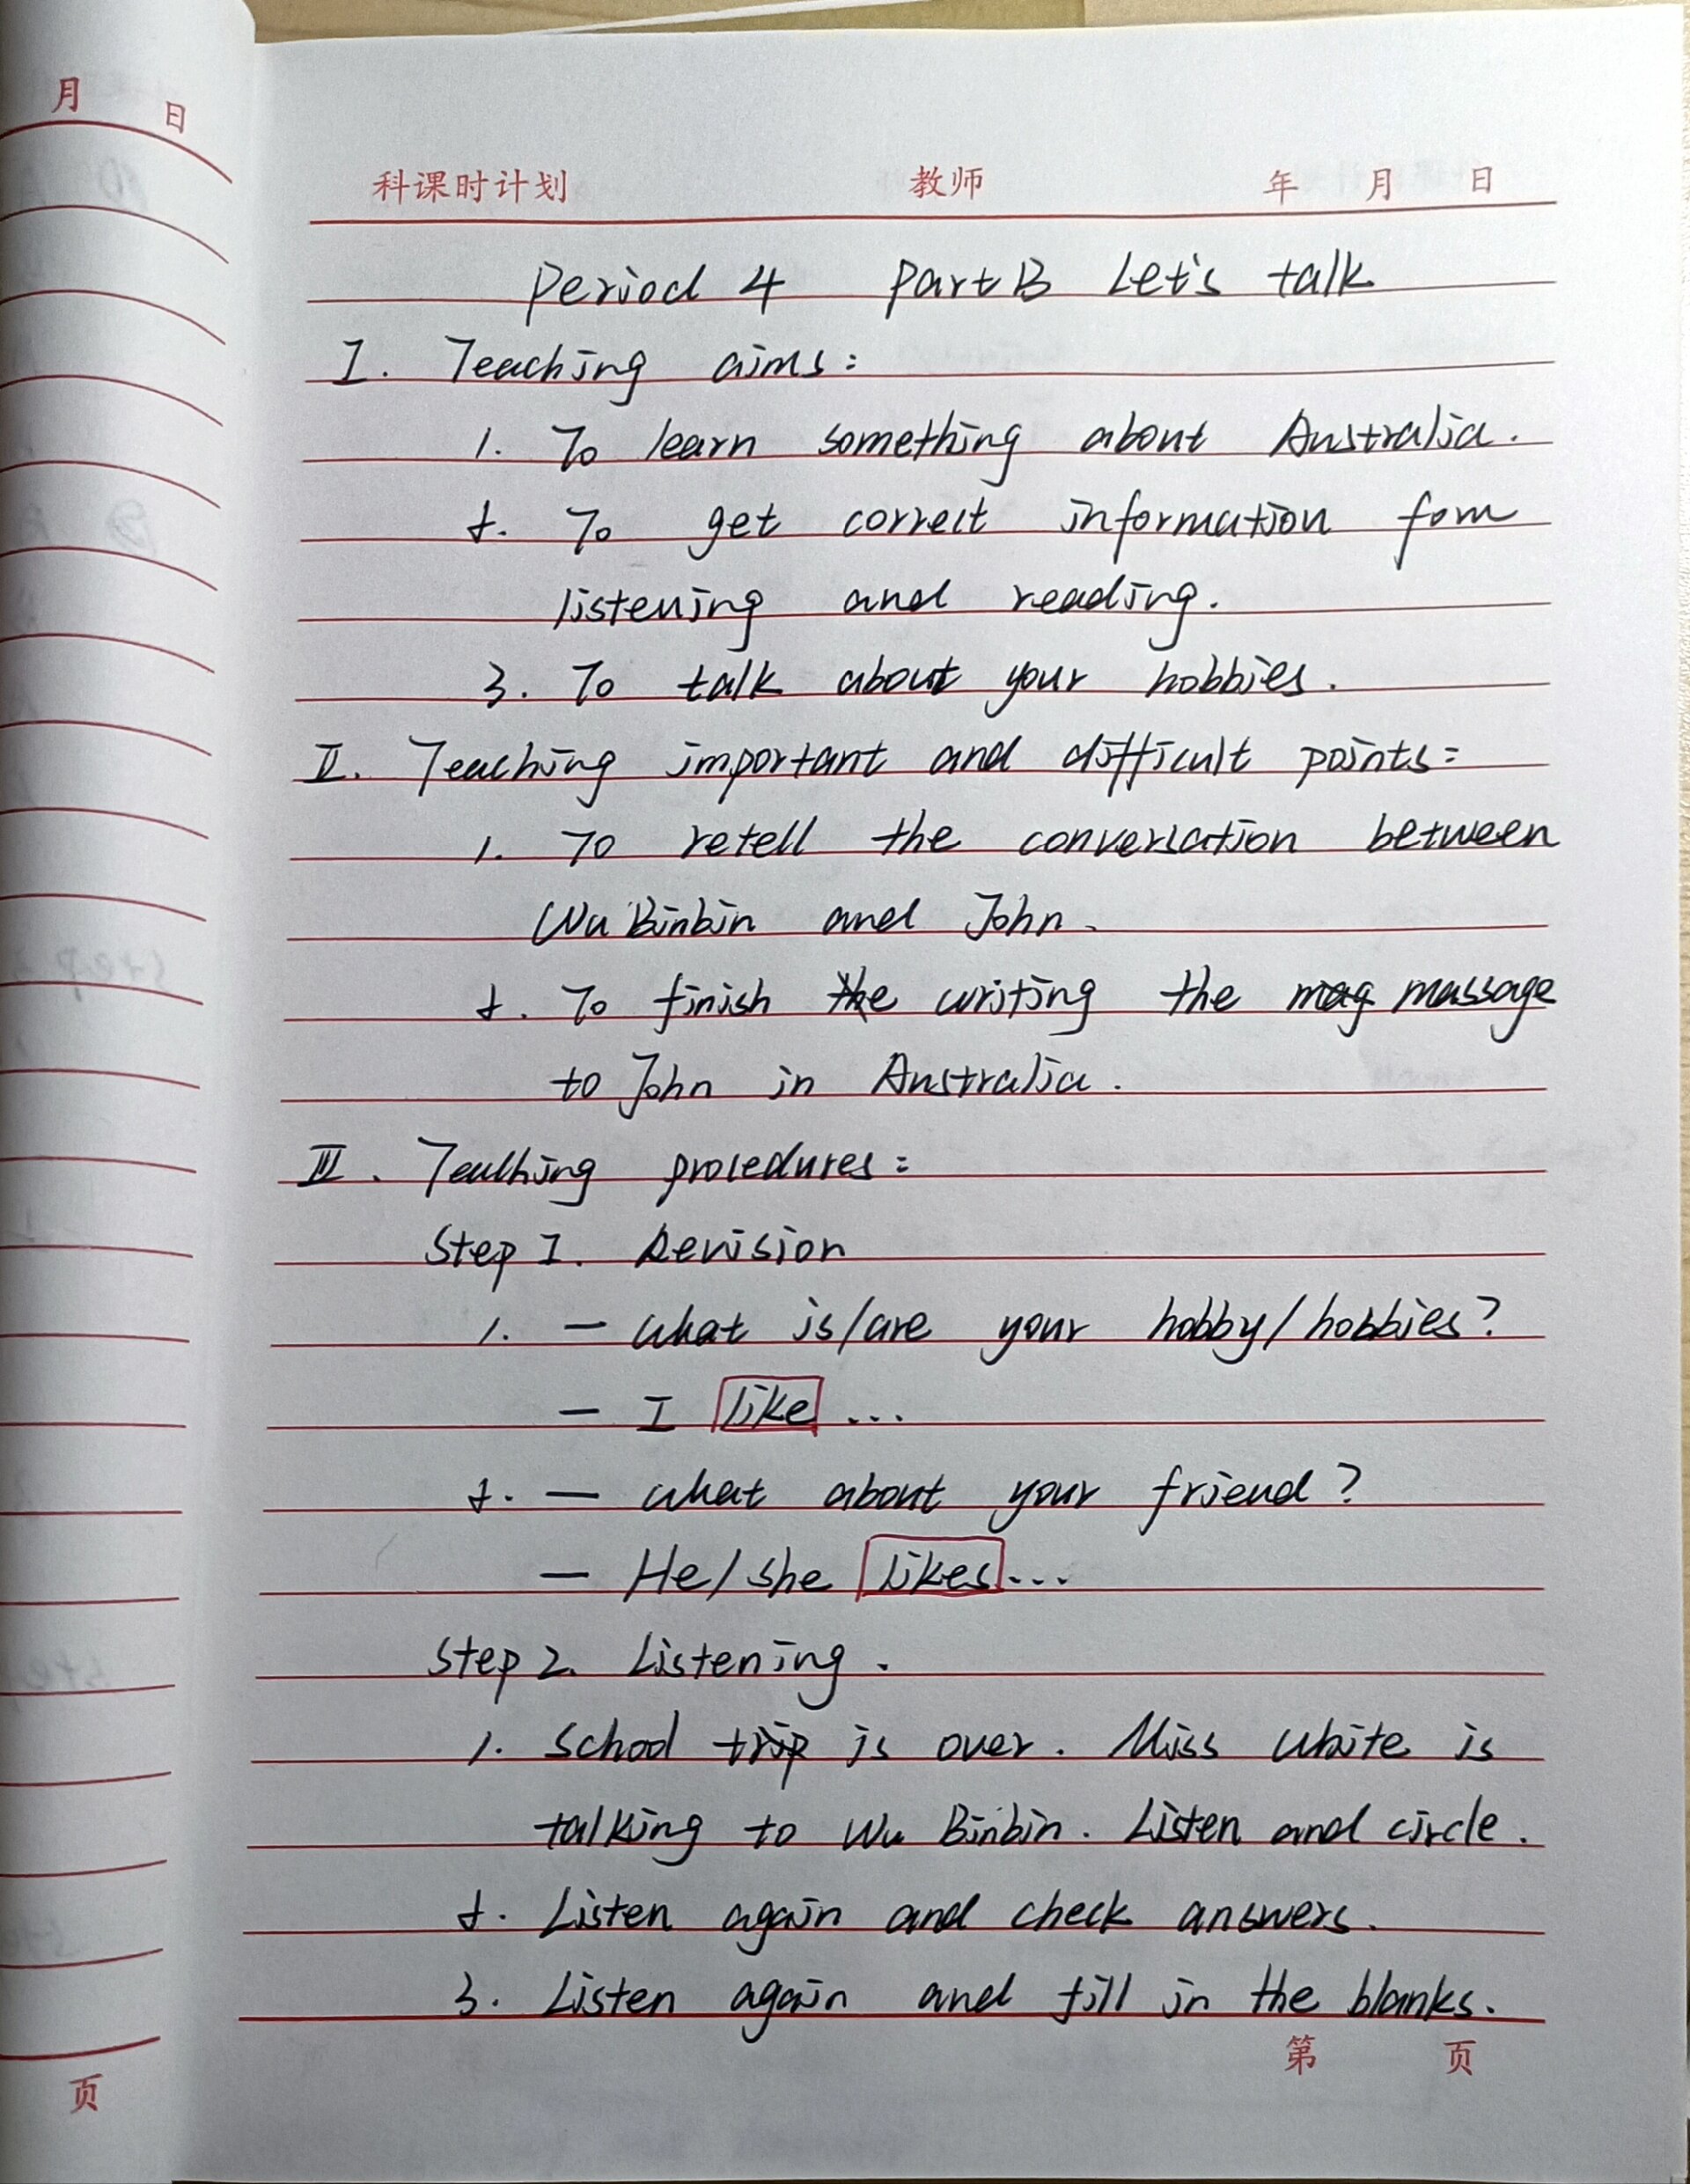 月 日
科课时计划 教师 年 月 日
Period 4 Part B Let's talk
I. Teaching aims:
1. To learn something about Australia.
2. To get correct information fom
listening and reading.
3. To talk about your hobbies.
II. Teaching important and difficult points:
1. To retell the conversation between
Wu Binbin and John.
2. To finish the writing the mag massage
to John in Australia.
III. Teaching procedures:
Step 1. Revision
1. — What is/are your hobby/hobbies?
— I like ...
2. — What about your friend?
— He/she likes ...
Step 2. Listening.
1. School trip is over. Miss White is
talking to Wu Binbin. Listen and circle.
2. Listen again and check answers.
3. Listen again and fill in the blanks.
第 页
页